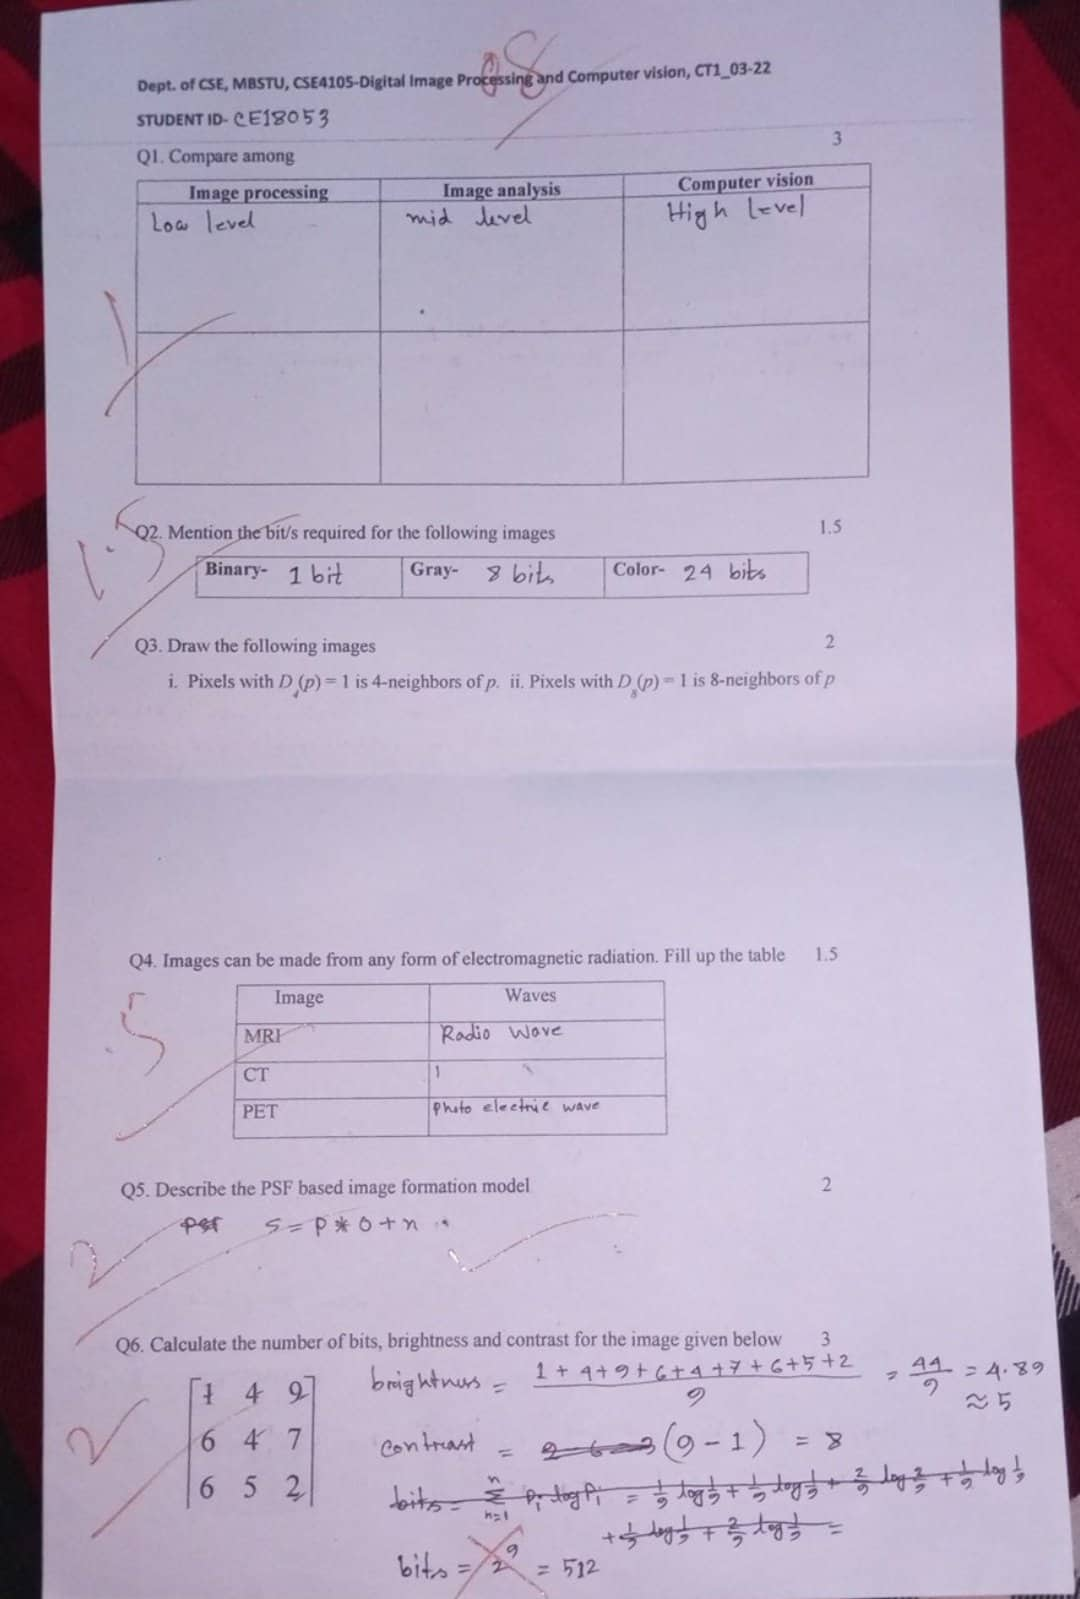 08
Dept. of CSE, MBSTU, CSE4105-Digital Image Processing and Computer vision, CT1_03-22
STUDENT ID- CE18053
Q1. Compare among 3
Image processing Image analysis Computer vision
Low level mid level High level
1
1.5
Q2. Mention the bit/s required for the following images 1.5
Binary- 1 bit Gray- 8 bits Color- 24 bits
Q3. Draw the following images 2
i. Pixels with D4(p) = 1 is 4-neighbors of p. ii. Pixels with D8(p) = 1 is 8-neighbors of p
Q4. Images can be made from any form of electromagnetic radiation. Fill up the table 1.5
.5
Image Waves
MRI Radio wave
CT 1
PET Photo electric wave
Q5. Describe the PSF based image formation model 2
2
PSF S = P * O + n
Q6. Calculate the number of bits, brightness and contrast for the image given below 3
2
1 4 9
6 4 7
6 5 2
brightness = 1+4+9+6+4+7+6+5+2 / 9 = 44/9 = 4.89
≈ 5
contrast = (9-1) = 8
bits = Σ Pi log Pi = 1/9 log 1/9 + 1/9 log 1/9 + 2/9 log 2/9 + 1/9 log 1/9
n=1
+ 1/9 log 1/9 + 2/9 log 1/9 =
bits = 2^9 = 512